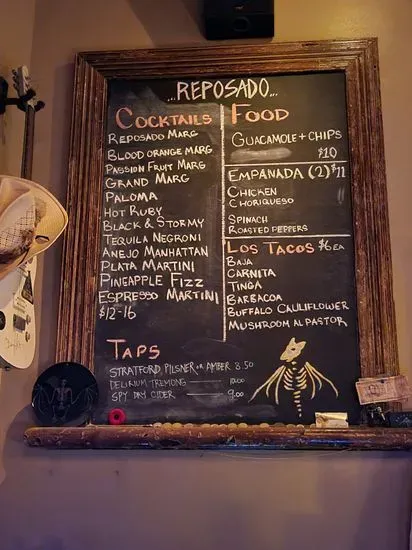 ...REPOSADO...
COCKTAILS
REPOSADO MARG
BLOOD ORANGE MARG
PASSION FRUIT MARG
GRAND MARG
PALOMA
HOT RUBY
BLACK & STORMY
TEQUILA NEGRONI
ANEJO MANHATTAN
PLATA MARTINI
PINEAPPLE FIZZ
ESPRESSO MARTINI
$12-16
FOOD
GUACAMOLE + CHIPS
$10
EMPANADA (2) $11
CHICKEN
CHORIQUESO
SPINACH
ROASTED PEPPERS
LOS TACOS $6 EA
BAJA
CARNITA
TINGA
BARBACOA
BUFFALO CAULIFLOWER
MUSHROOM AL PASTOR
TAPS
STRATFORD PILSNER OR AMBER 8.50
DELIRIUM TREMONS 10.00
SPY DAY CIDER 9.00